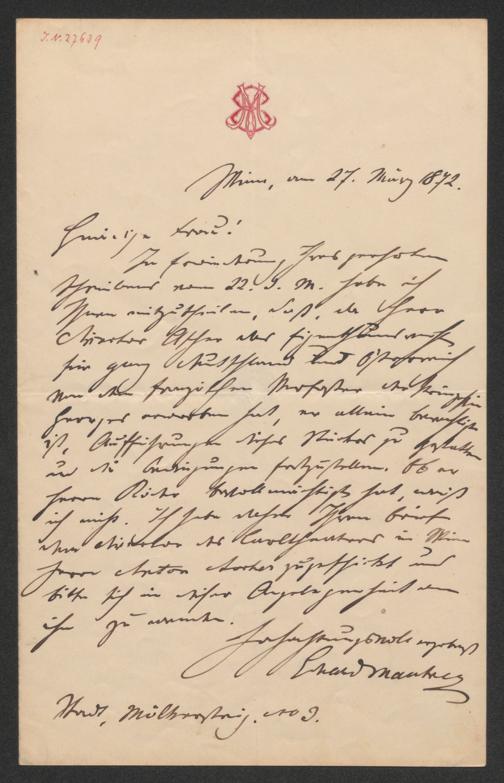 J.N. 27639
Wien, am 27. März 1872.
Gnädige Frau!
In Erwiederung Ihres geehrten
Schreibens vom 22. d. M. habe ich
Ihnen mitzutheilen, daß, da Herr
Director Ascher das Eigenthumsrecht
für ganz Deutschland und Österreich
von den französischen Verfasser
Georges erworben hat, er allein berechtigt
ist, Aufführungen dieses Stückes zu gestatten
und die Bedingungen festzustellen. Ob er
Herrn bevollmächtigt hat, weiß
ich nicht. Ich habe daher Ihren Brief
dem Director des Carltheaters in Wien
Herrn Anton Ascher zugeschickt und
bitte sich in dieser Angelegenheit an
ihn zu wenden.
Hochachtungsvoll ergebenst
Eduard Mautner
Stadt, Mölkersteig. No 3.